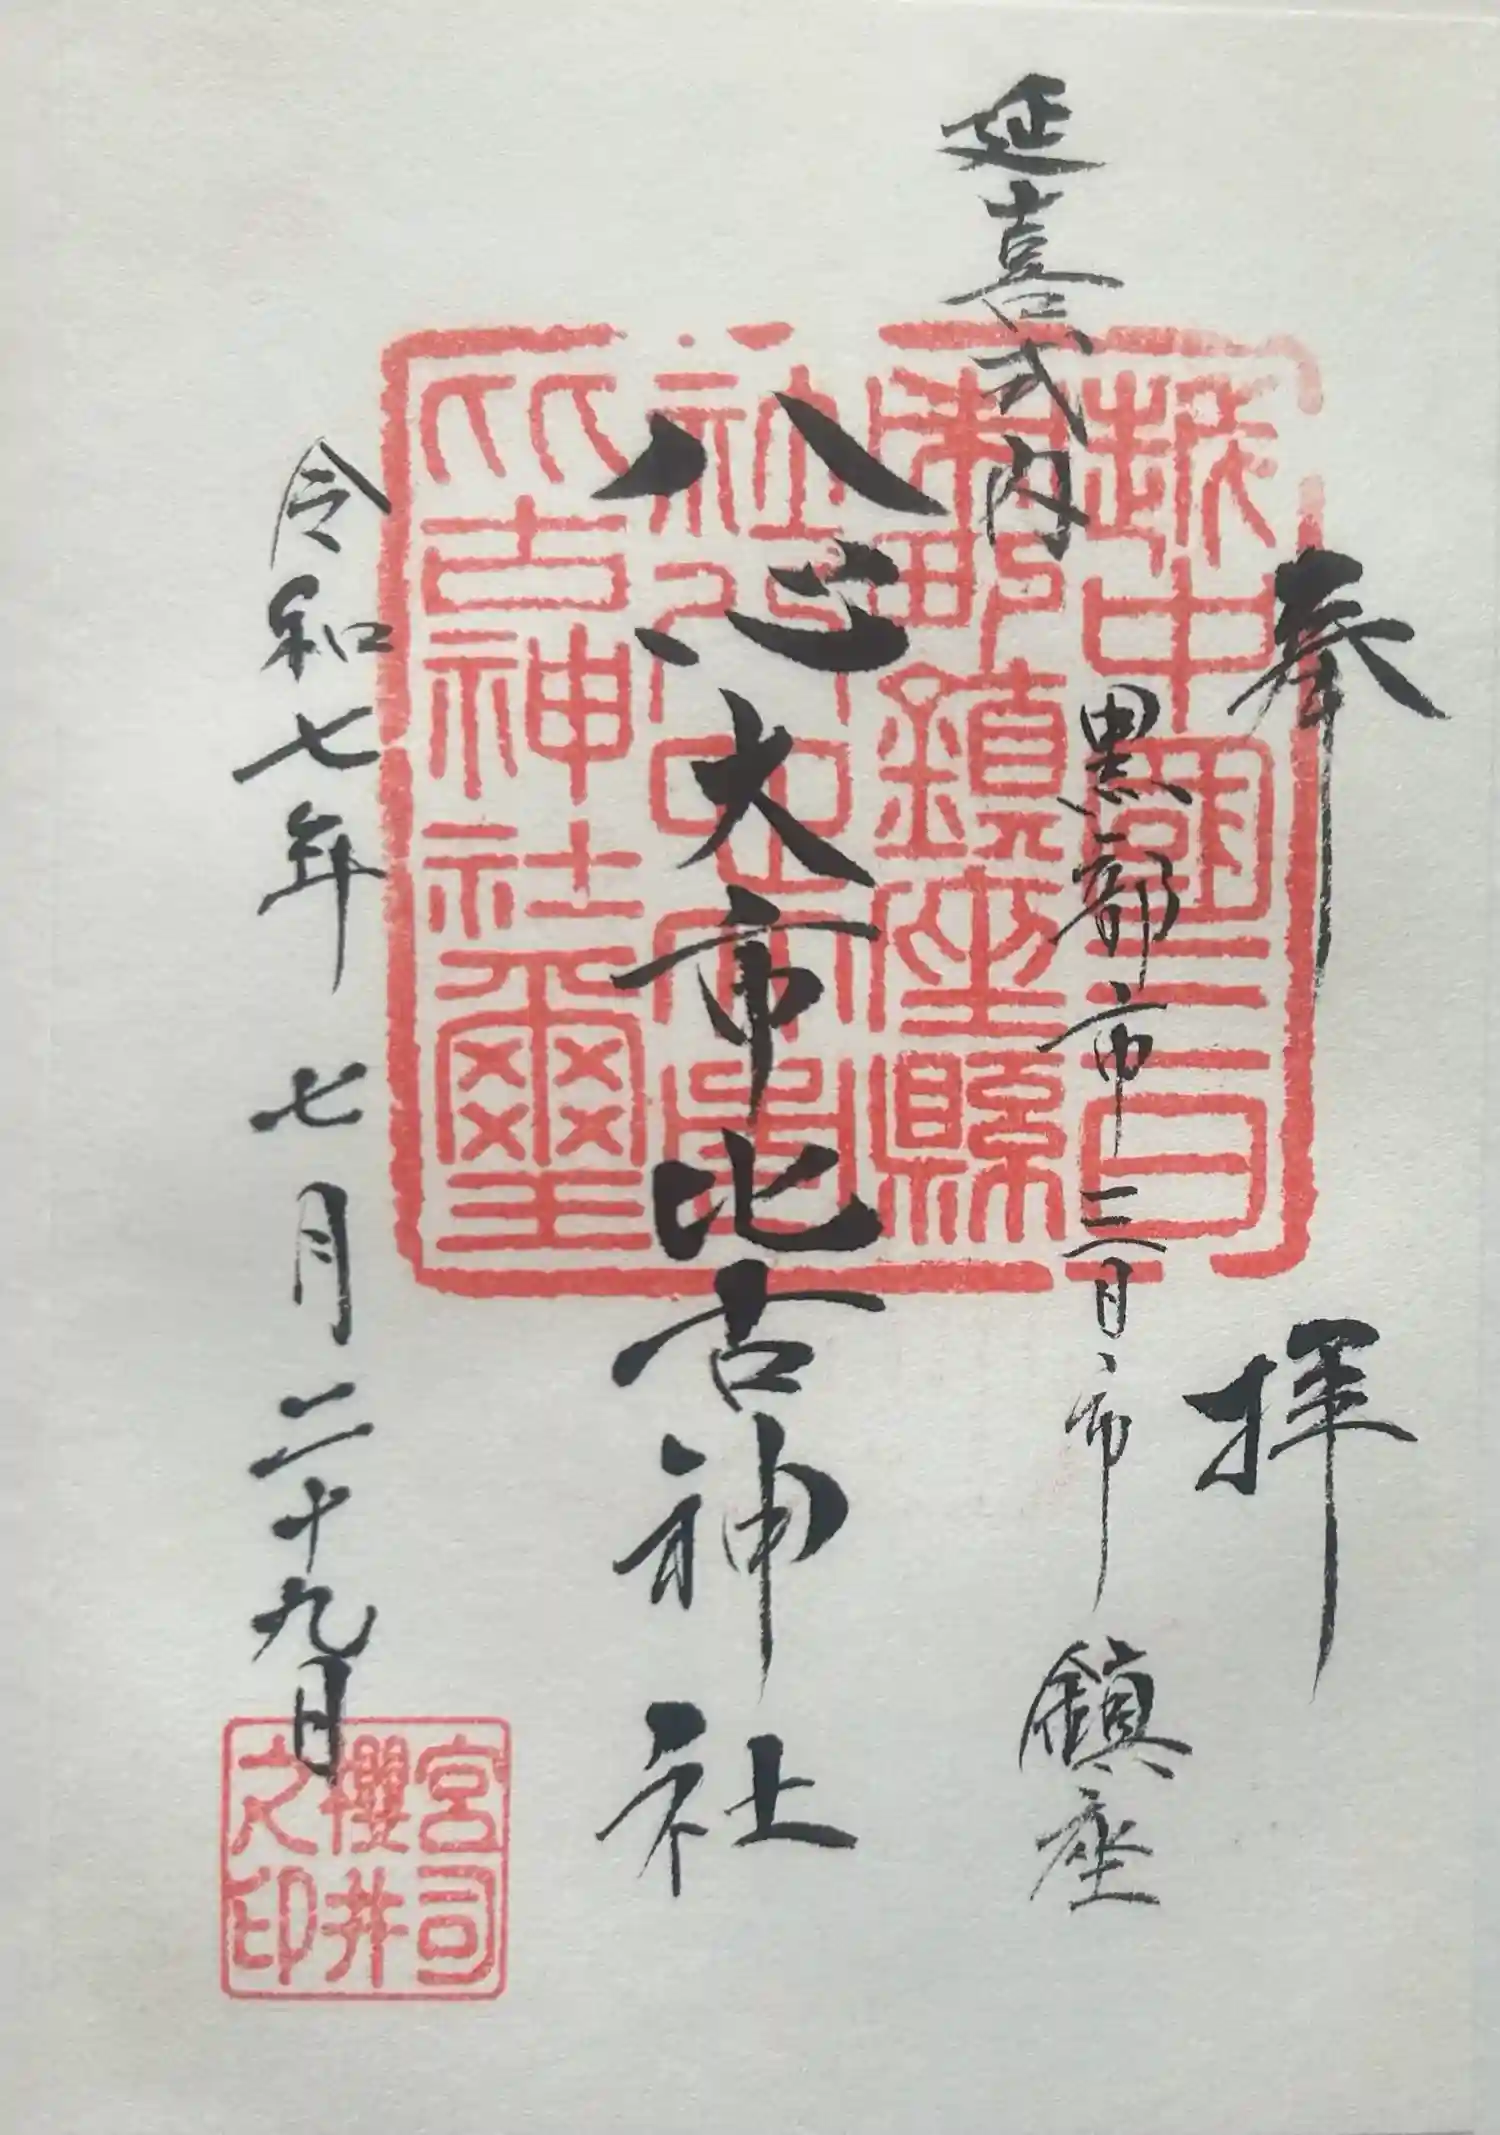 奉拝
延喜式内
黒部市三日市鎮座
八心大市比古神社
令和七年七月二十九日
越中國三日
市町鎮座縣
比古神社璽
宮司
櫻井
之印